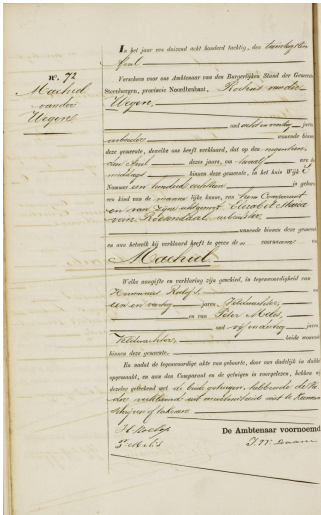 N°. 72
Machiel
van der
Wegen
In het jaar een duizend acht honderd tachtig, den twintigsten
April
Verscheen voor ons Ambtenaar van den Burgerlijken Stand der Gemeente
Steenbergen, provincie Noordbrabant, van der
Wegen,
oud jaren
arbeider wonende binnen
deze gemeente, dewelke ons heeft verklaard, dat op den negentienden
den April dezes jaars, om twaalf ure des
middags binnen deze gemeente, in het huis Wijk
Nummer een honderd achttien is geboren
een kind van de mannelijke kunne, van hem Comparant
en van zijne echtgenoote Elisabet Maria
van Rosendaal, arbeidster,
wonende binnen deze gemeente
en aan hetwelk hij verklaard heeft te geven de voornaam
Machiel
Welke aangifte en verklaring zijn geschied, in tegenwoordigheid van
jaren, Veldwachter,
en van Peter
oud vijf en dertig jaren
Veldwachter, beide wonende
binnen deze gemeente.
En nadat de tegenwoordige akte van geboorte, door ons dadelijk in dubbel
opgemaakt, en aan den Comparant en de getuigen is voorgelezen, hebben
dezelve geteekend met de beide getuigen, hebbende de Va-
der verklaard uit niet te kunnen
schrijven of teekenen
De Ambtenaar voornoemd